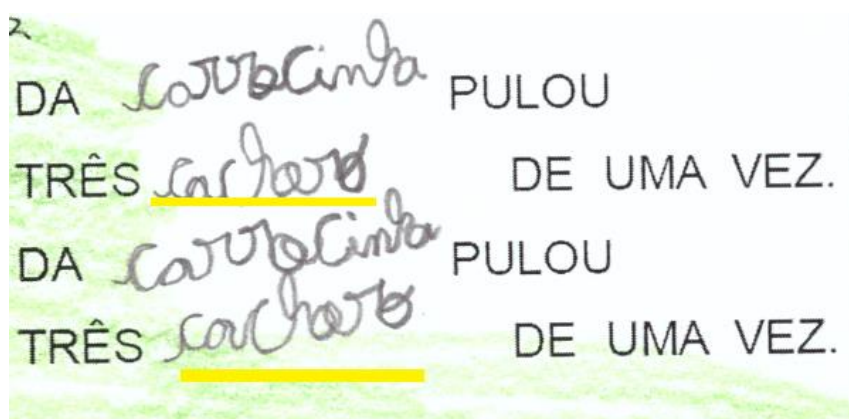 2
DA carrocinha PULOU
TRÊS cachoro DE UMA VEZ.
DA carrocinha PULOU
TRÊS cachoro DE UMA VEZ.